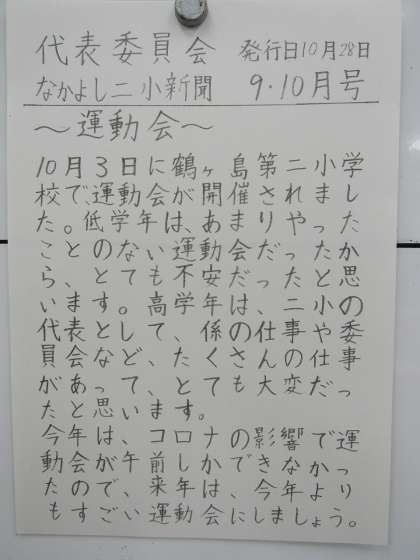 代表委員会 発行日10月28日
なかよし二小新聞 9・10月号
〜運動会〜
10月3日に鶴ヶ島第二小学
校で、運動会が開催されまし
た。低学年は、あまりやった
ことのない運動会だったか
ら、とても不安だったと思
います。高学年は、二小の
代表として、係の仕事や委
員会など、たくさんの仕事
があって、とても大変だっ
たと思います。
今年は、コロナの影響で運
動会が午前しかできなかっ
たので、来年は、今年より
もすごい運動会にしましょう。